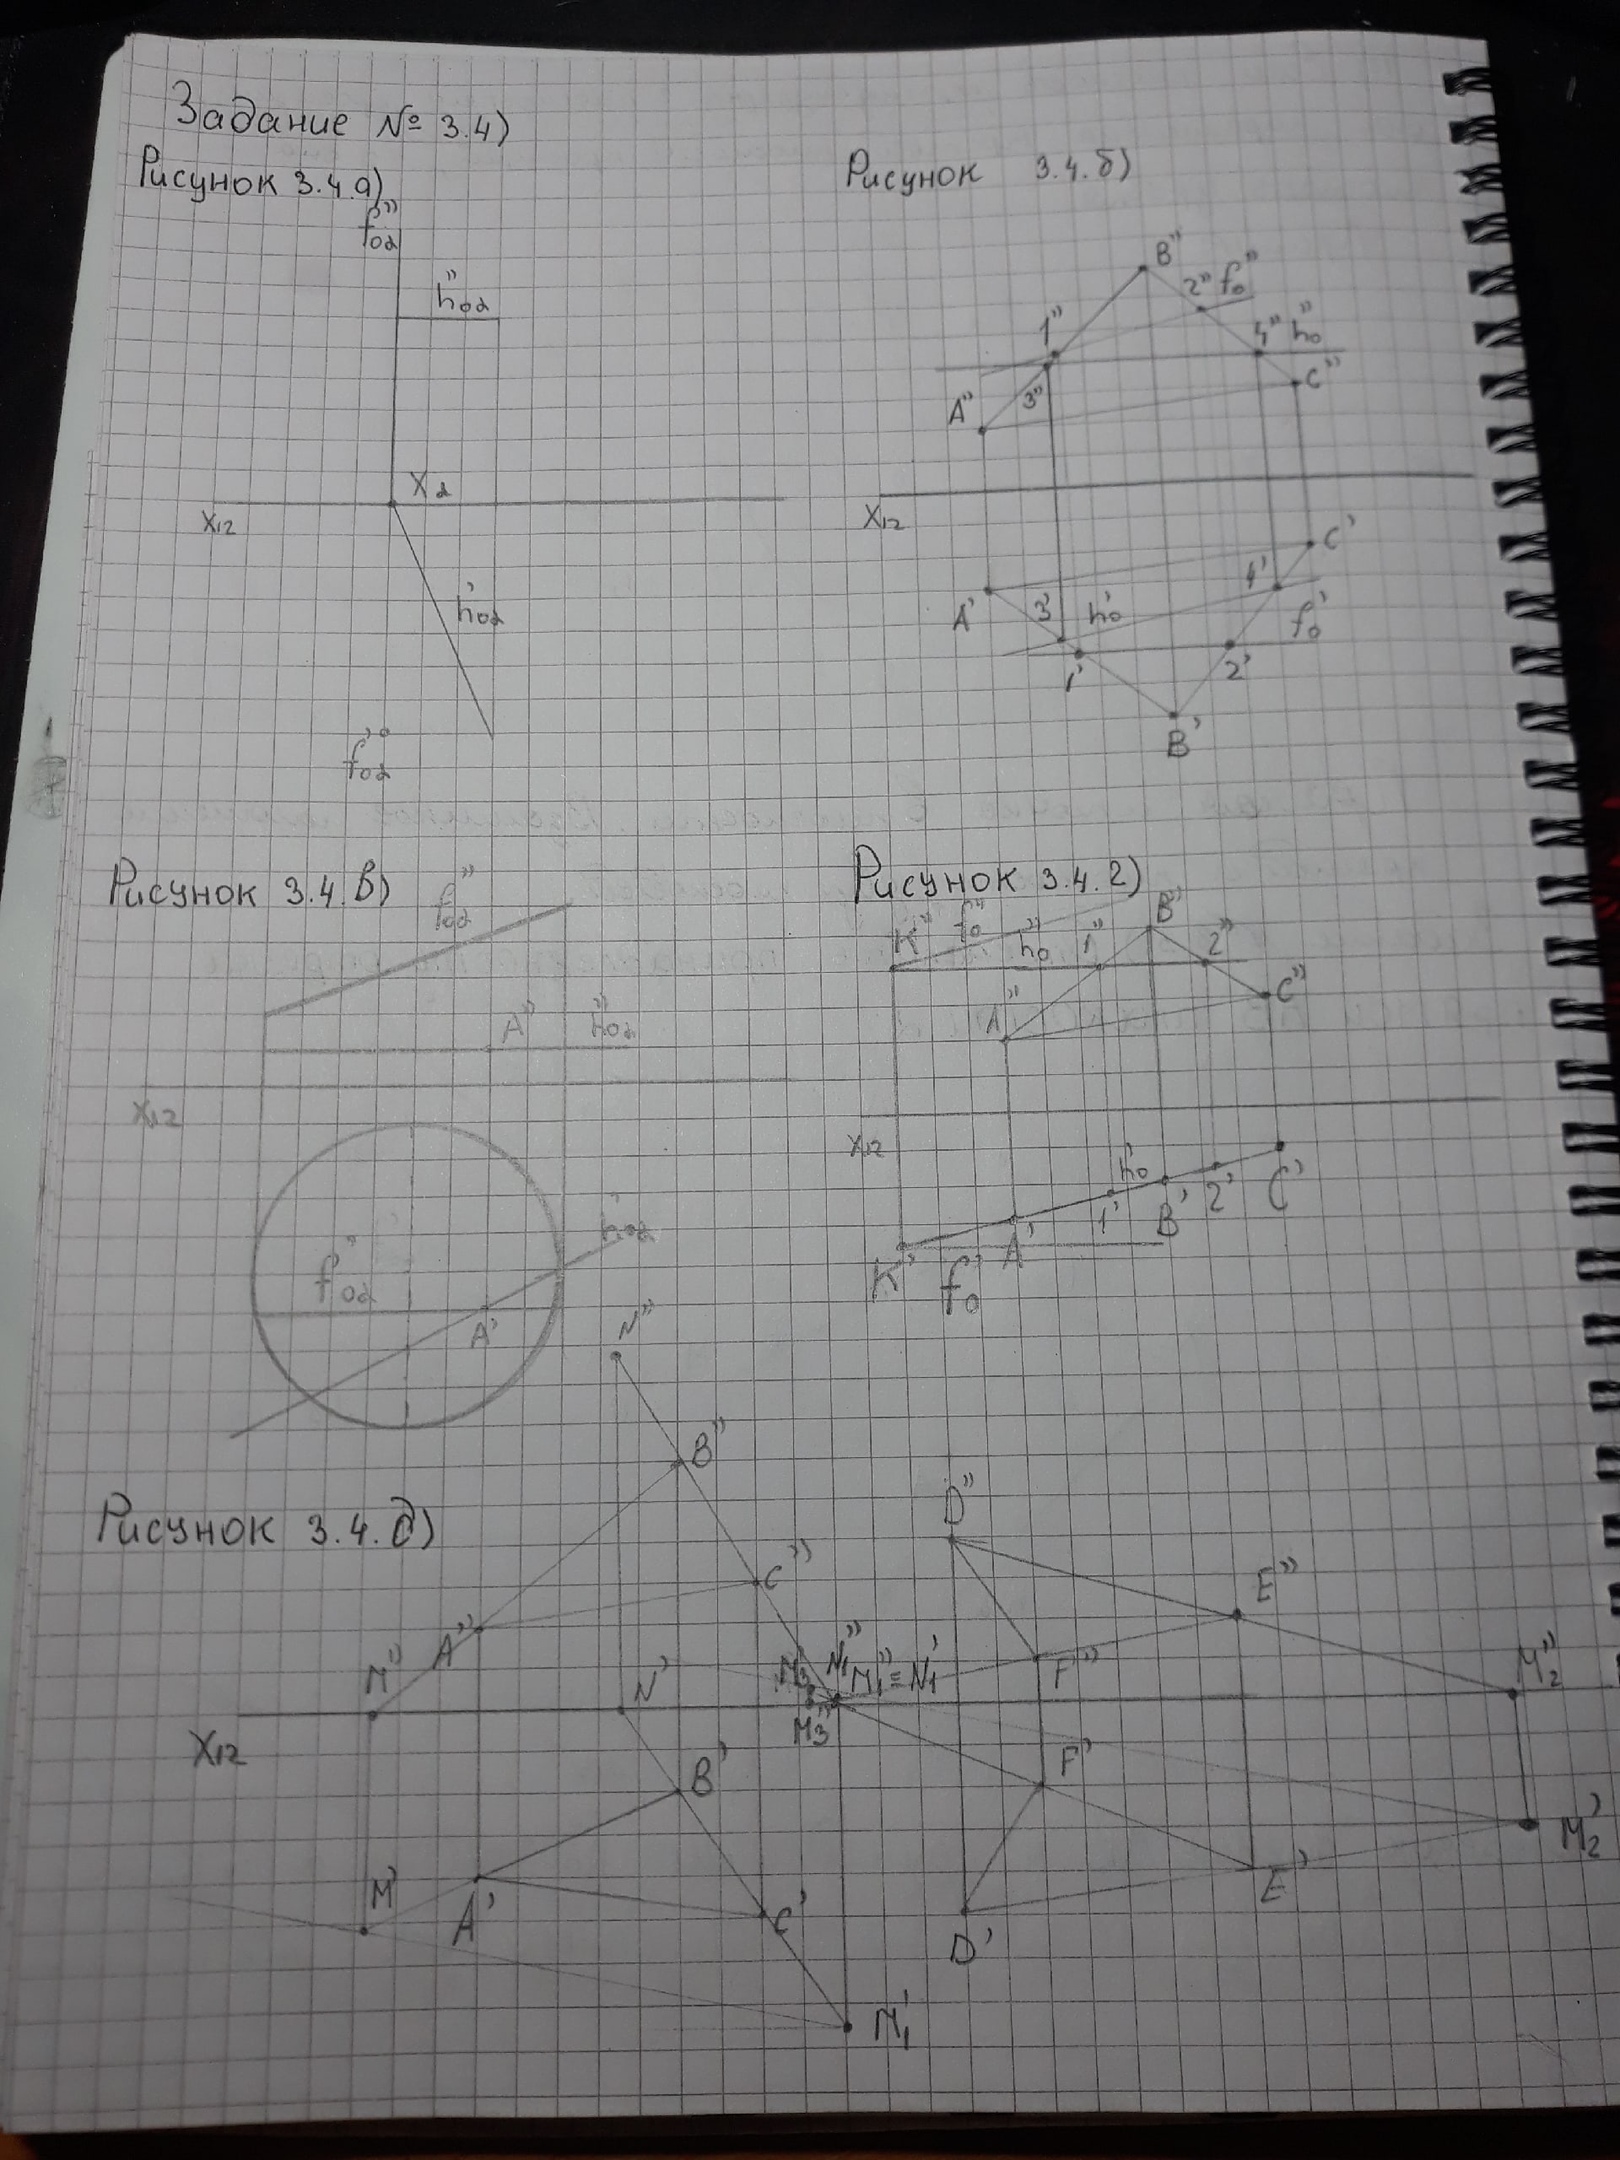 Задание № 3.4)
Рисунок 3.4.а)
f''₀α
h''₀α
Xα
X₁₂
h'₀α
f'₀α
Рисунок 3.4.б)
B''
2'' f''₀
1''
4'' h''₀
C''
A'' 3''
X₁₂
C'
4'
A' 3' h'₀ f'₀
1' 2'
B'
Рисунок 3.4.в)
f''₀α
A'' h''₀α
X₁₂
h'₀α
f'₀α
A'
Рисунок 3.4.г)
K'' f''₀ h''₀ 1'' B'' 2''
A'' C''
X₁₂
h'₀
K' f'₀ A' 1' B' 2' C'
Рисунок 3.4.д)
N''
B''
D''
C'' E''
A''
M'' N' N''₁ M''₁≡N'₁ F'' M''₂
M''₃
X₁₂
B' F'
M'₂
M' A' C' E'
D'
N'₁